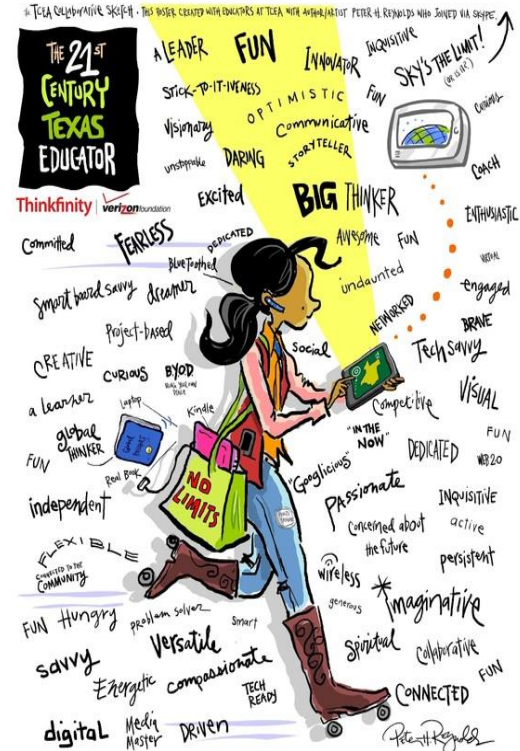 A TCEA COLLABORATIVE SKETCH • THIS POSTER CREATED WITH EDUCATORS AT TCEA WITH AUTHOR/ARTIST PETER H. REYNOLDS WHO JOINED VIA SKYPE.
THE 21ST
CENTURY
TEXAS
EDUCATOR
Thinkfinity | verizonfoundation
A LEADER
FUN
INNOVATOR
INQUISITIVE
SKY'S THE LIMIT!
(OR IS IT?)
STICK-TO-IT-IVENESS
OPTIMISTIC
FUN
Curious
Visionary
Communicative
unstoppable
DARING
STORYTELLER
COACH
Excited
BIG THINKER
ENTHUSIASTIC
Committed
FEARLESS
DEDICATED
Awesome
FUN
VIRTUAL
BlueToothed
undaunted
engaged
Smart board savvy
dreamer
NETWORKED
BRAVE
Project-based
social
Tech savvy
CREATIVE
CURIOUS
BYOD
BRING YOUR OWN
DEVICE
VISUAL
a learner
Laptop
Kindle
Competitive
global
THINKER
"IN THE
NOW"
DEDICATED
FUN
WEB 2.0
FUN
Real Book
"Googlicious"
NO
LIMITS
independent
PASSIONATE
INQUISITIVE
Concerned about
the future
active
FLEXIBLE
CONNECTED TO THE
COMMUNITY
persistent
wireless
generous
imaginative
FUN
Hungry
problem solver
Smart
Versatile
Spiritual
Collaborative
savvy
Energetic
compassionate
FUN
TECH
READY
CONNECTED
digital
Media
Master
DRIVEN
Peter H. Reynolds